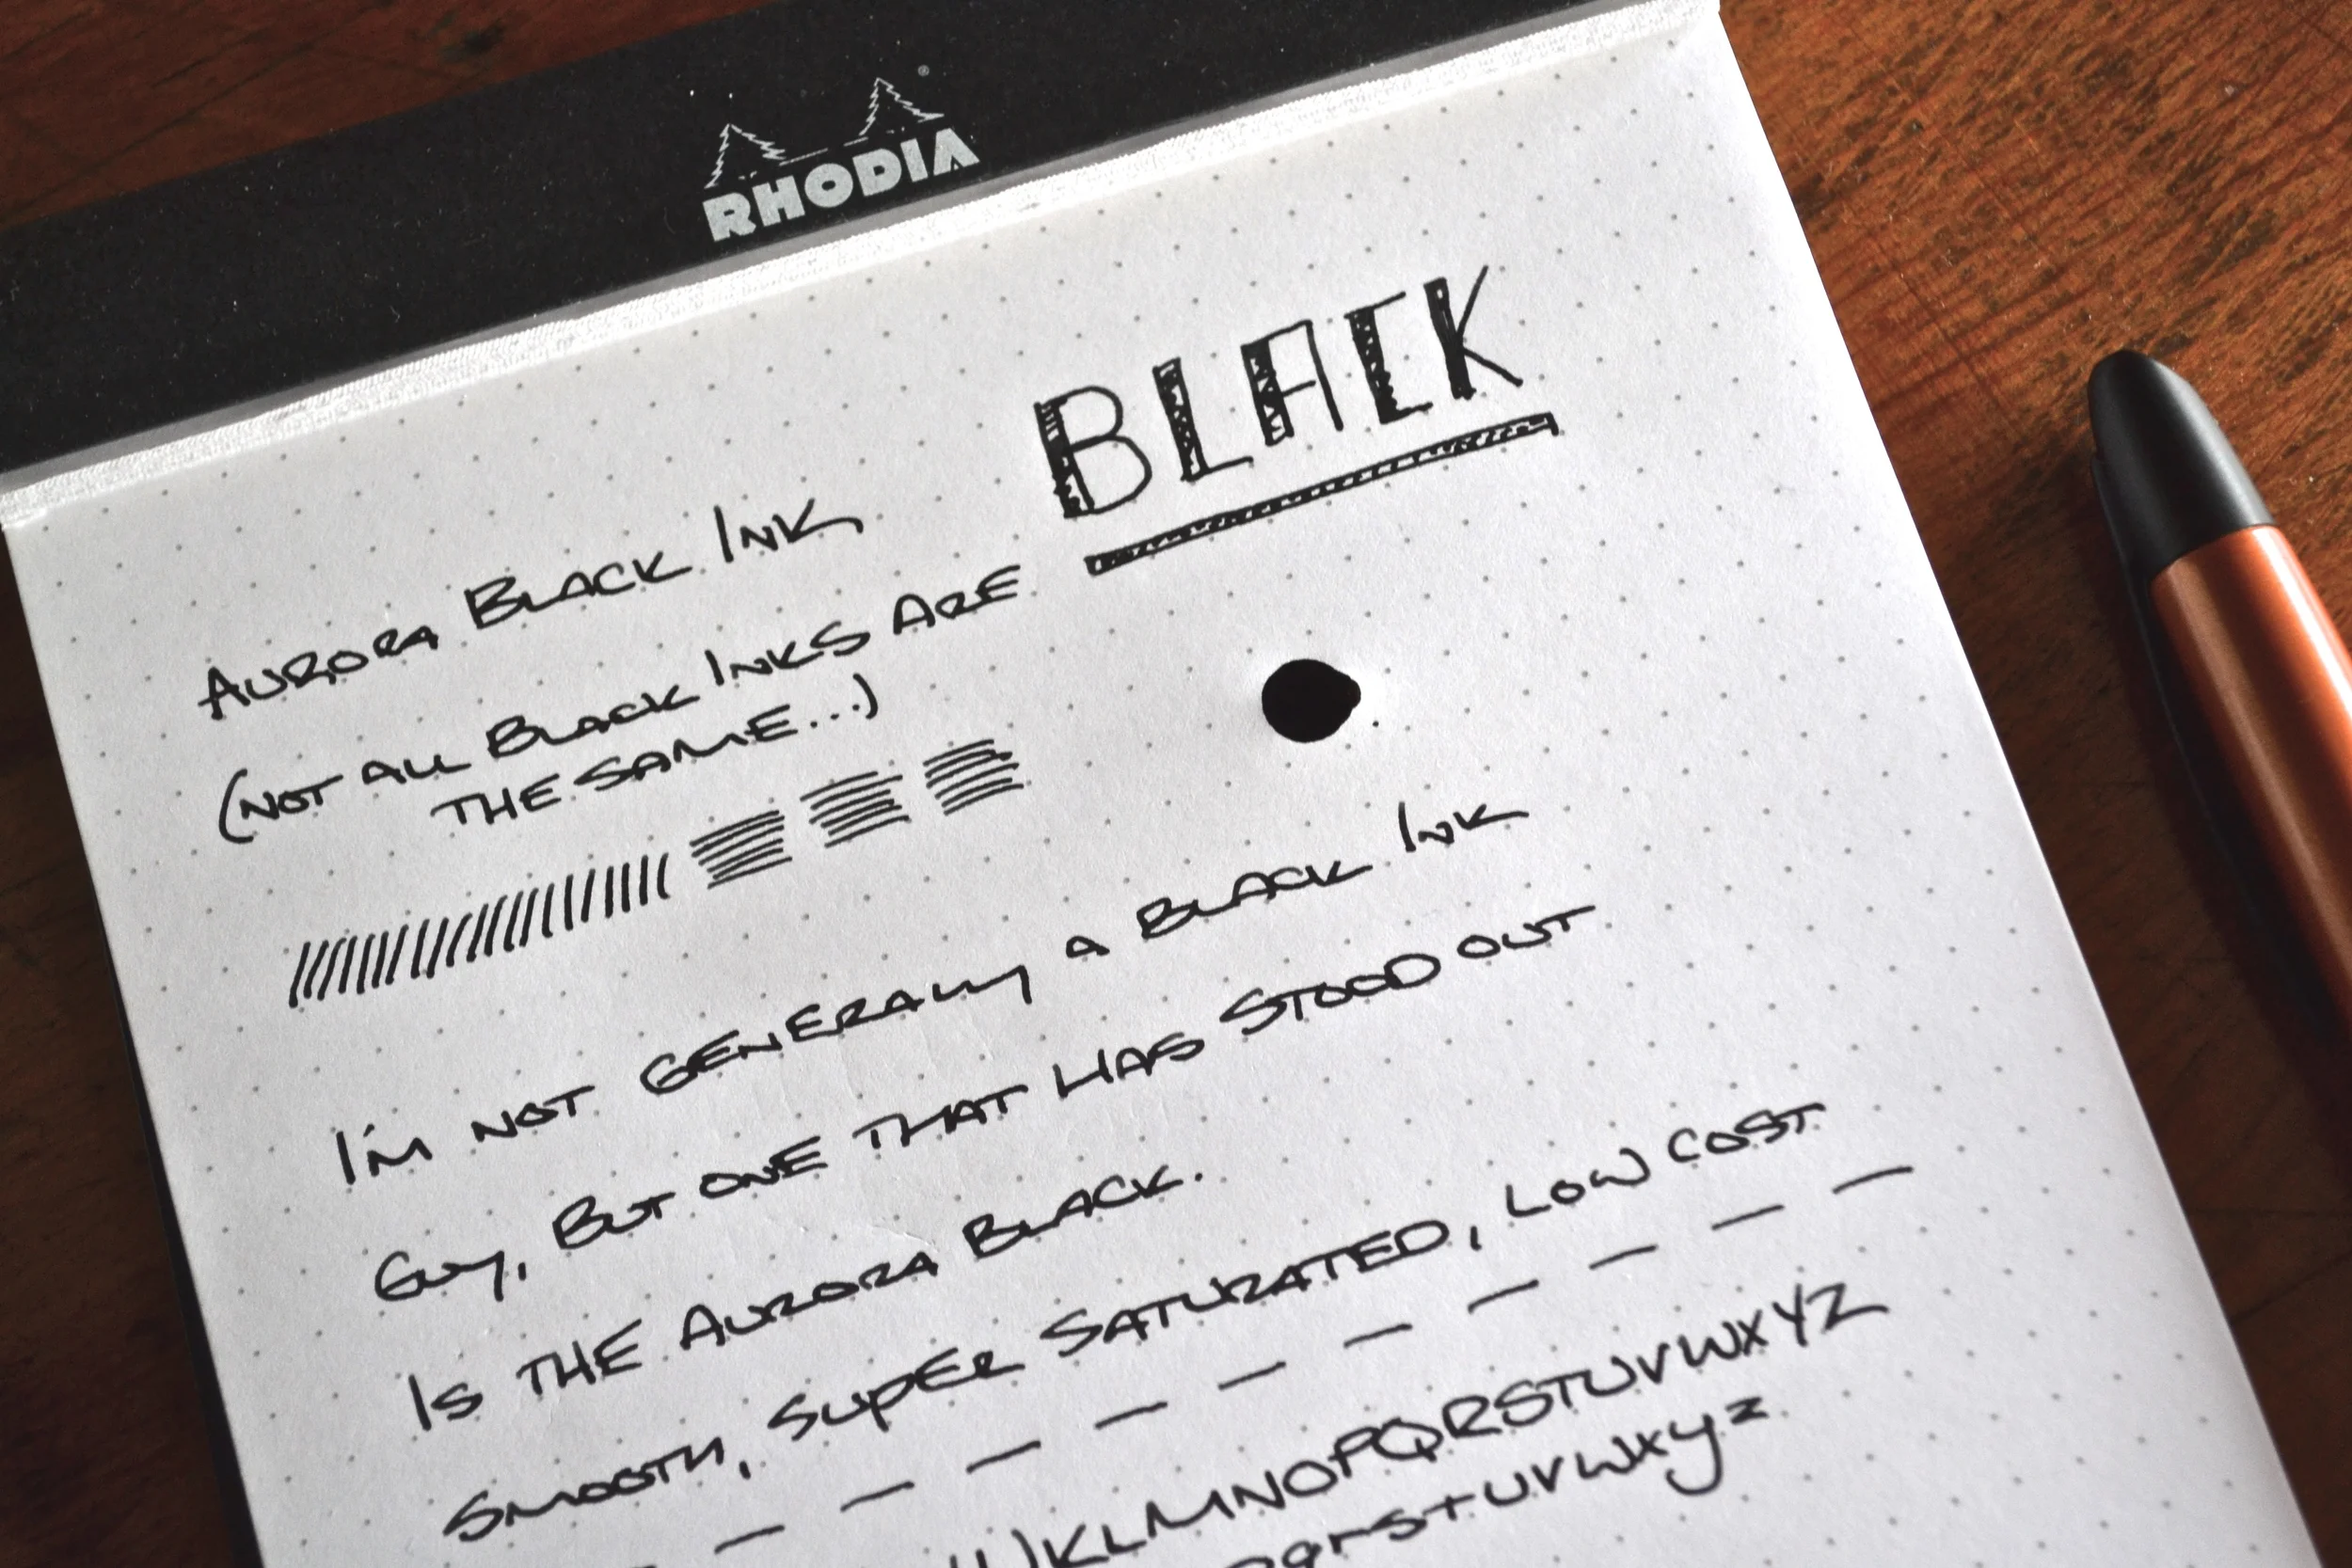 RHODIA
BLACK
AURORA BLACK INK
(NOT ALL BLACK INKS ARE
THE SAME...)
I'M NOT GENERALLY A BLACK INK
GUY, BUT ONE THAT HAS STOOD OUT
IS THE AURORA BLACK.
SMOOTH, SUPER SATURATED, LOW COST
JKLMNOPQRSTUVWXYZ
qrstuvwxyz